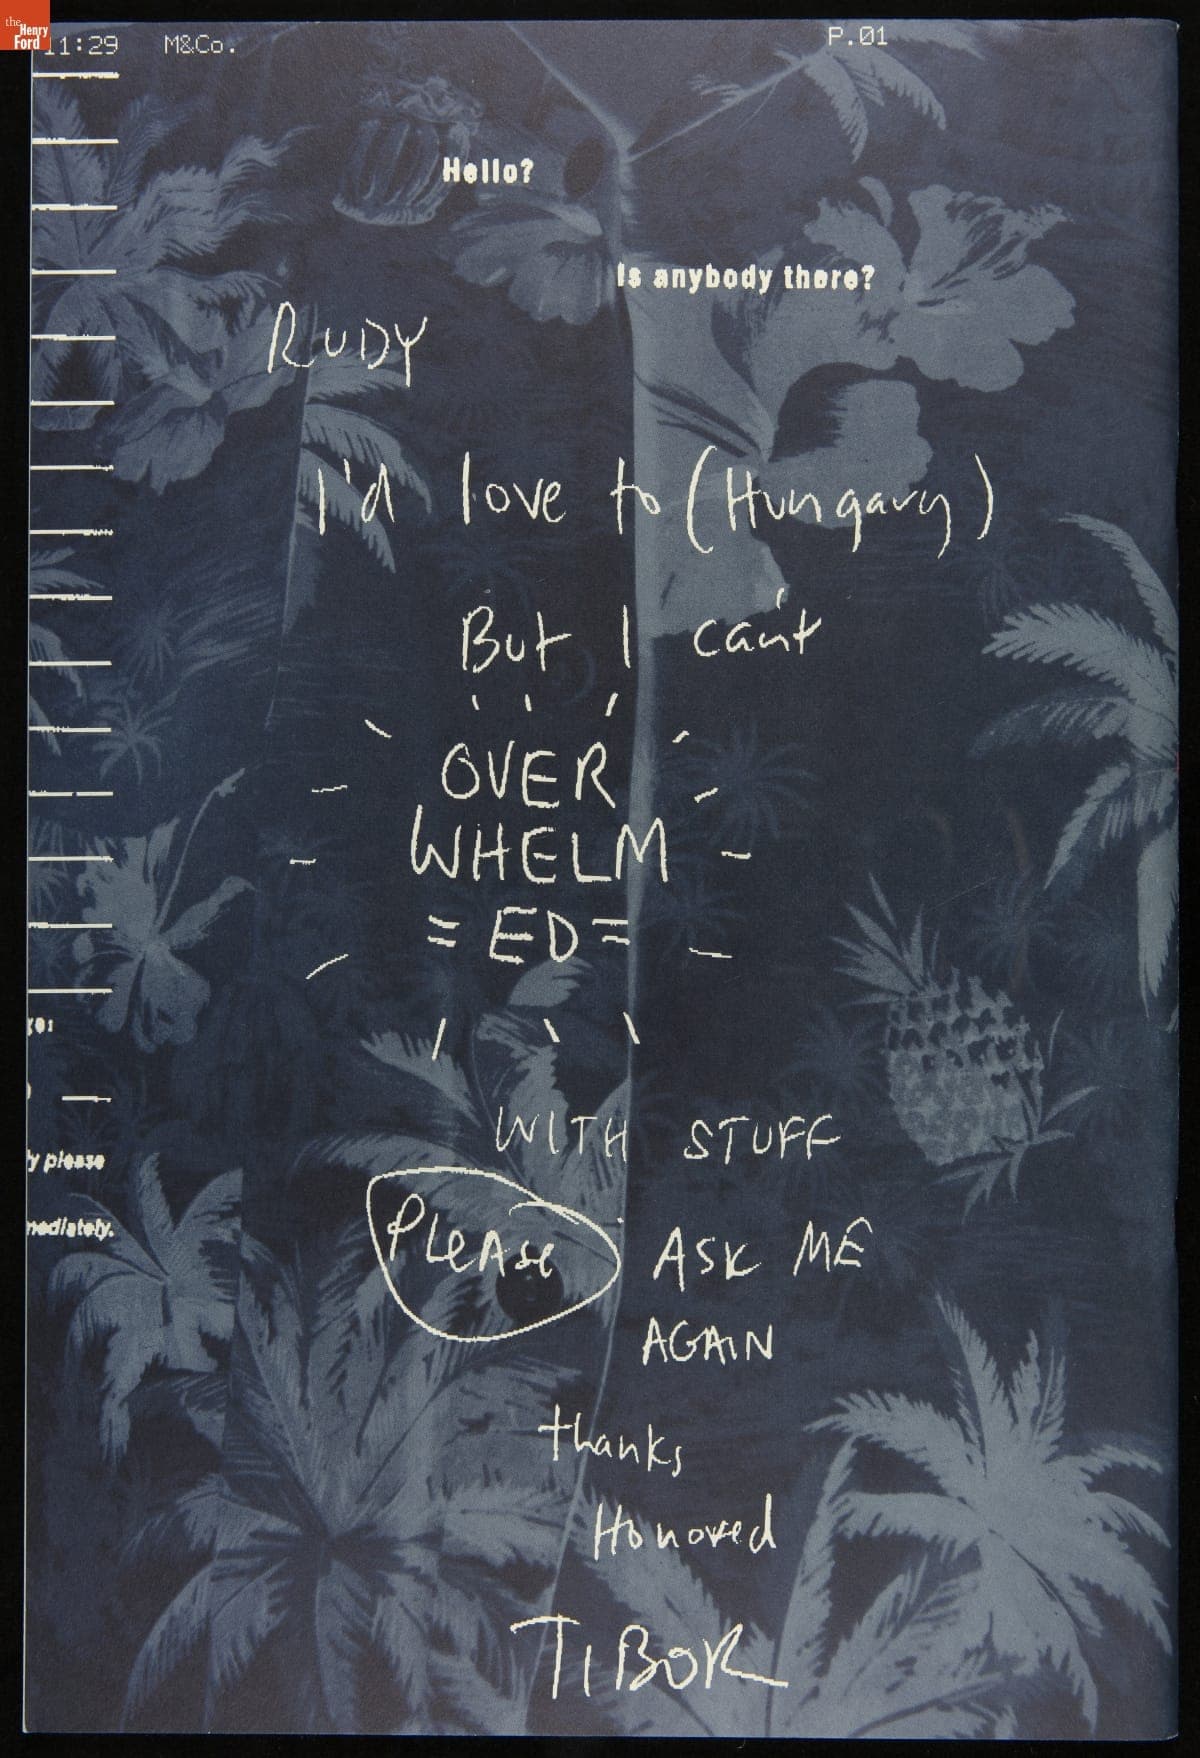 the
Henry
Ford
11:29 M&Co. P.01
Hello?
Is anybody there?
RUDY
I'd love to (Hungary)
But I can't
OVER
WHELM
=ED=
WITH STUFF
PLEASE ASK ME
AGAIN
thanks
Honored
TIBOR
y please
mediately.